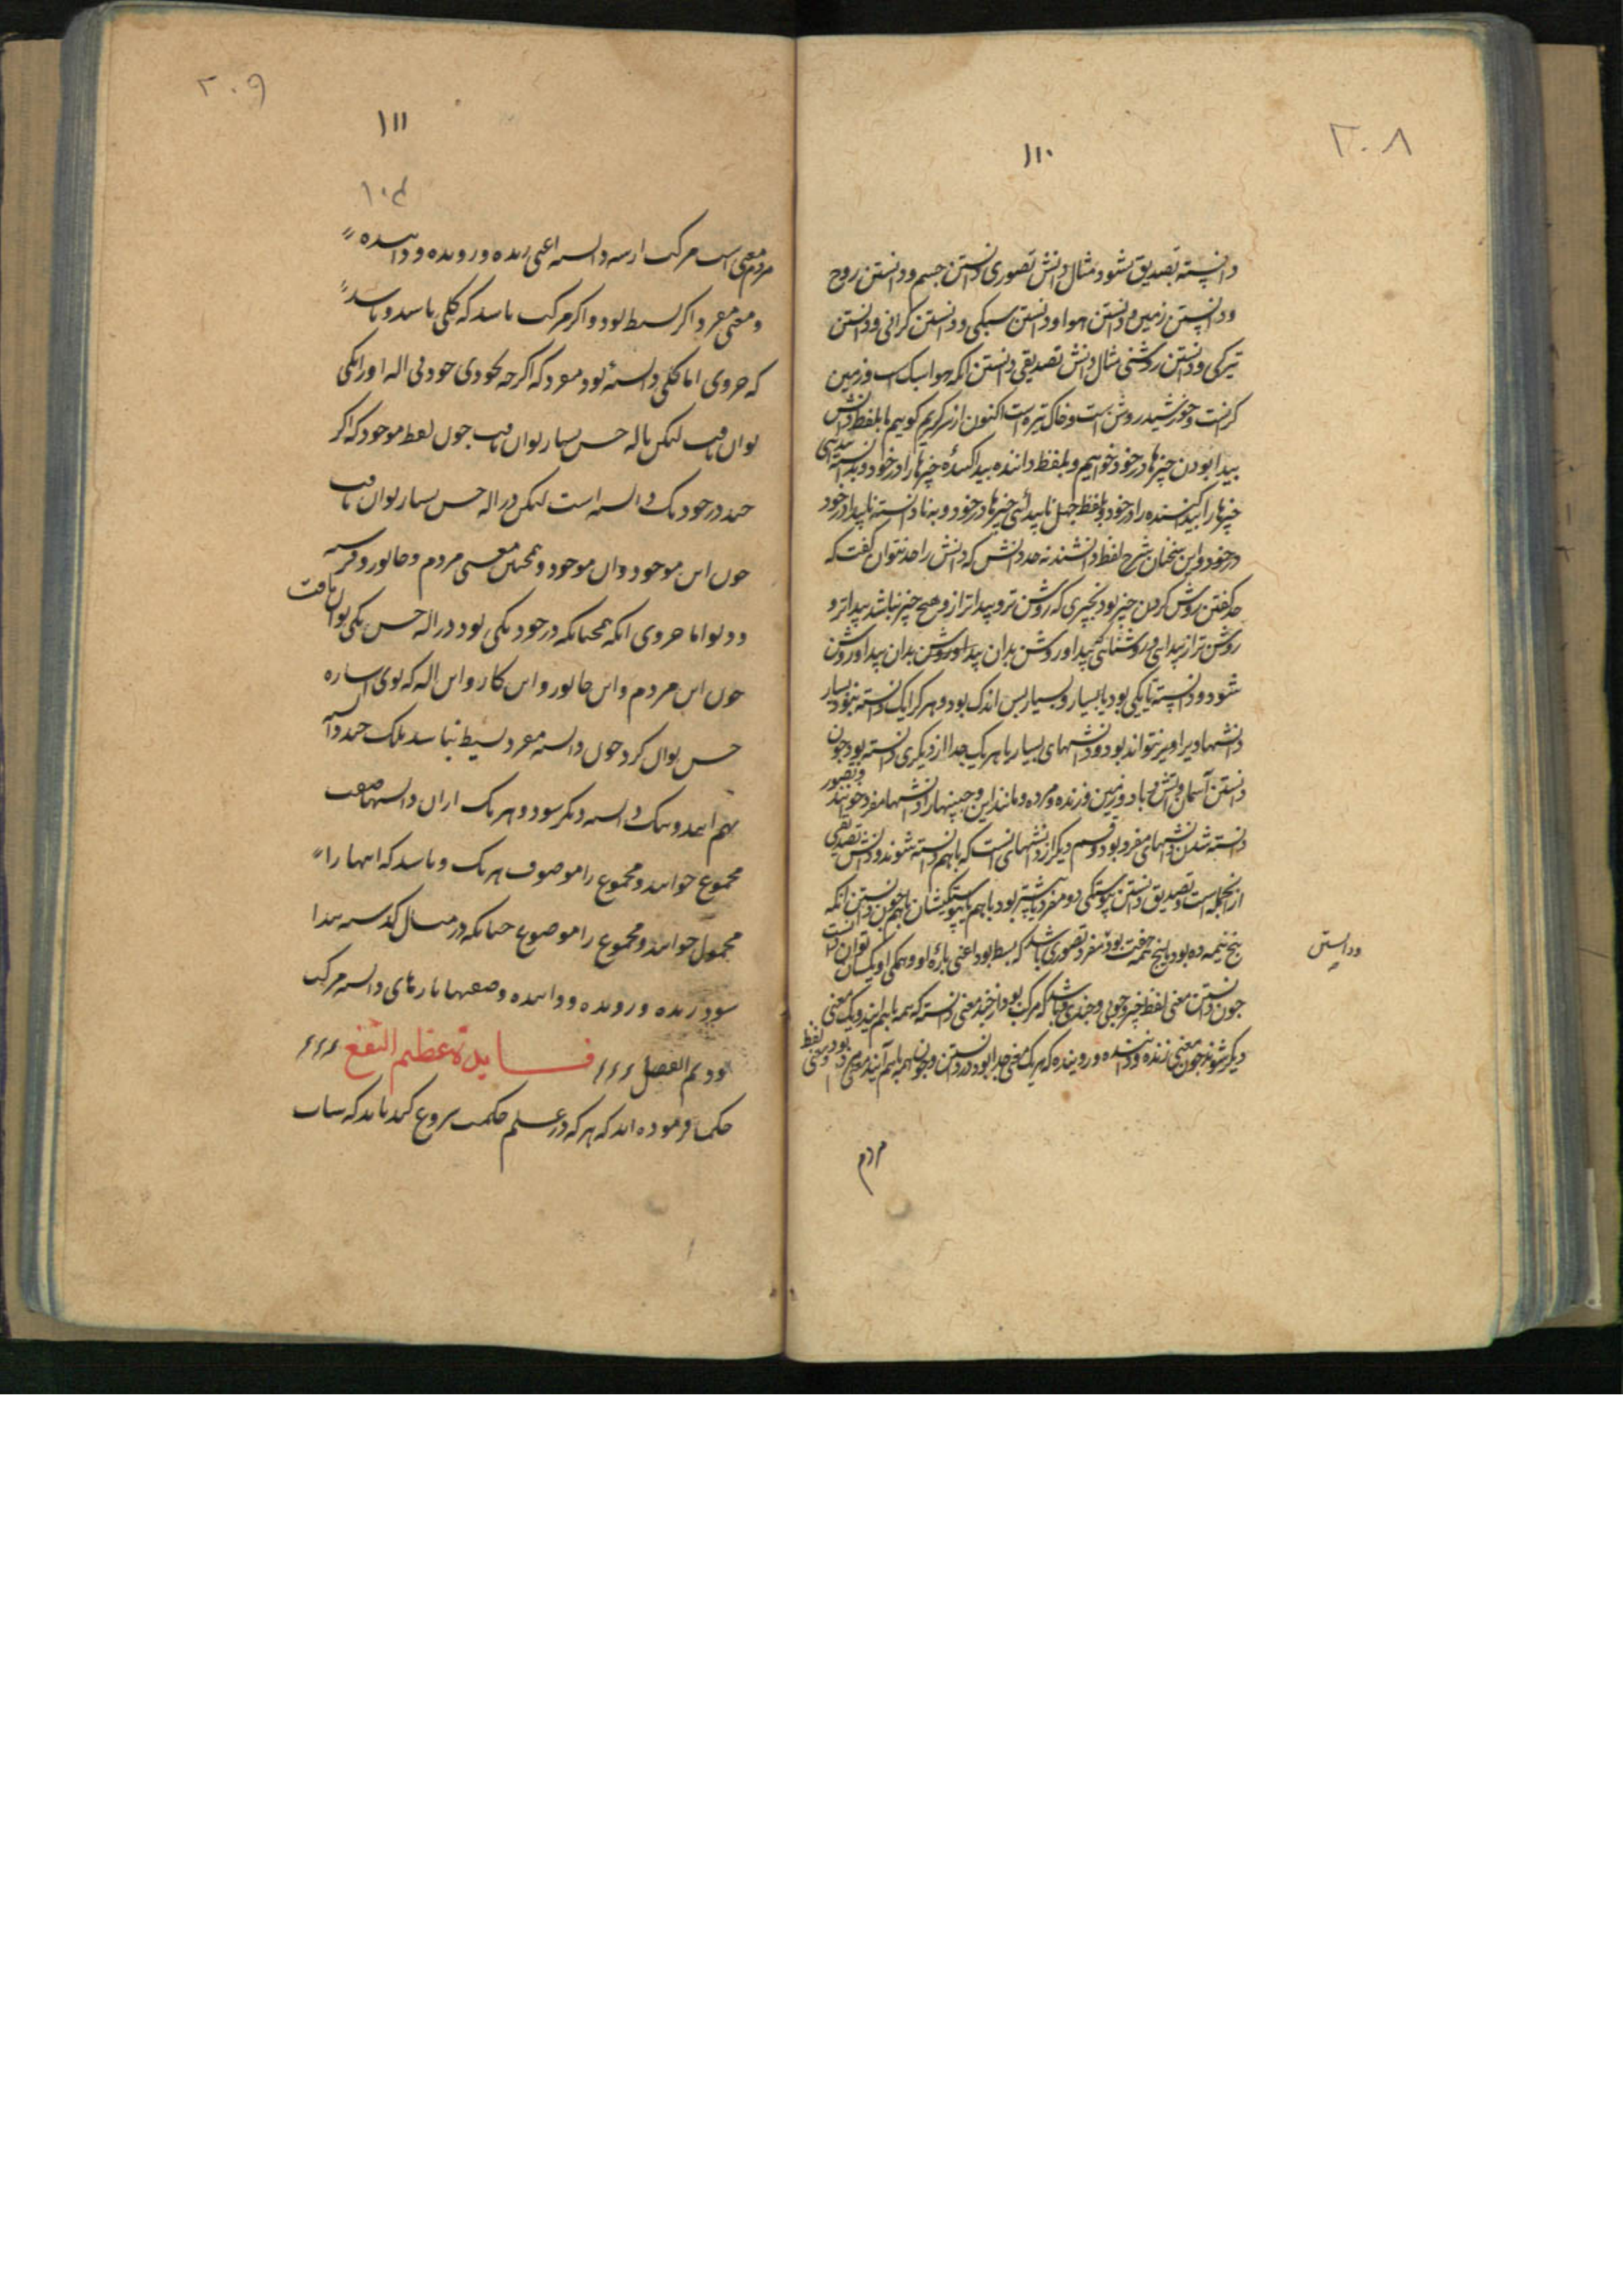 ۲۰۸
۱۱۰
دانسته بتصدیق نشود مثال دانش تصوری دانستن جسم و دانستن روح
و دانستن زمین و دانستن هوا و دانستن سبکی و دانستن گرانی و دانستن
تیرگی و دانستن روشنی مثال دانش تصدیقی دانستن انکه هوا سبک است و زمین
گرانست و خورشید روشن است و خاک تیره است اکنون از سر گریم گوییم ما بلفظ دانش
پیدا بودن چیزها در خود خواهیم و بلفظ داننده پیدا کننده چیزها را در خود و بدانسته
چیزها را در خود و بلفظ جهل ناپیدائی چیزها در خود و به نادانسته ناپیدا در خود
در خود و این سخنان شرح لفظ دانشند نه حد دانش که دانش را حد نتوان گفت که
حد گفتن روشن کردن چیز بود بچیزی که روشن تر و پیداتر ازو هیچ چیز نباشد پیداتر و
روشن تر از پیدایی و روشنائی که پیدا و روشن بدان پیدا و روشن بدان پیدا و روشن
شود و دانسته یا یکی بود یا بسیار و بسیار پس اندک بود و هر کرا یک دانسته نبود بسیار
دانشها ویرا ویر نتواند بود و دانشهای بسیار یا هر یک جدا از دیگری دانسته بود چون
دانستن آسمان و آتش و باد و زمین و زنده و مرده و مانند این و چنینها را دانشها مفرد خوانند و تصور
دانسته شدن دانشهای مفرد بود و قسم دیگر از دانشهای انست که باهم دانسته شوند و دانش تصدیقی
از انجمله است و تصدیق دانستن پیوستگی دو مفرد یا بیشتر بود باهم یا پیوستگیشان باهم چون دانستن انکه
پنج نیمه ده بود یا پنج نیمه جفت بود و مفرد تصوری باشد که بسیط بود اعنی پاره او و همگی او یکسان توان دانست
و دانستن
چون دانستن معنی لفظ چیز و چون و چندی و باشد که مرکب بود از چند معنی دانسته که همه باهم آیند و یک معنی
دیگر شوند چون معنی زنده و داننده و روینده که هر یک معنی جدا بود در دانستن و چون همه باهم آیند معنی مردم بود و معنی لفظ
مردم
۲۰۹
۱۱۱
۱۰۴
مردم معنی است مرکب از سه دانسته اعنی زنده و رونده و داننده
و معنی مفرد اگر بسیط بود و اگر مرکب باشد که کلی باشد و باشد
که جزوی اما کلی دانسته بود مفرد که اگرچه بخودی خود بی اله او را یکی
توان یافت لیکن باله حس بسیار توان یافت چون لفظ موجود که اگر
چند در خود یک دانسته است لیکن در اله حس بسیار توان یافت
چون این موجود و ان موجود و همچنین معنی مردم و جانور و فرشته
و دیو اما جزوی انکه همچنانکه در خود یکی بود در اله حس یکی توان یافت
چون این مردم و این جانور و این کار و این اله که بوی اشاره
حس توان کرد چون دانسته مفرد بسیط نباشد بلک چند دانسته
بهم ایند و یک دانسته دیگر شود و هر یک ازان دانستها صفت
مجموع خوانند و مجموع را موصوف هر یک و باشد که اینها را
محمول خوانند و مجموع را موضوع چنانکه در مثال گذشته پیدا
شود زنده و رونده و داننده وصفها پارهای دانسته مرکب
بود تم الفصل فـــایدة عظیم النفع
حکما فرموده اند که هر که در علم حکمت شروع کند باید که شاب